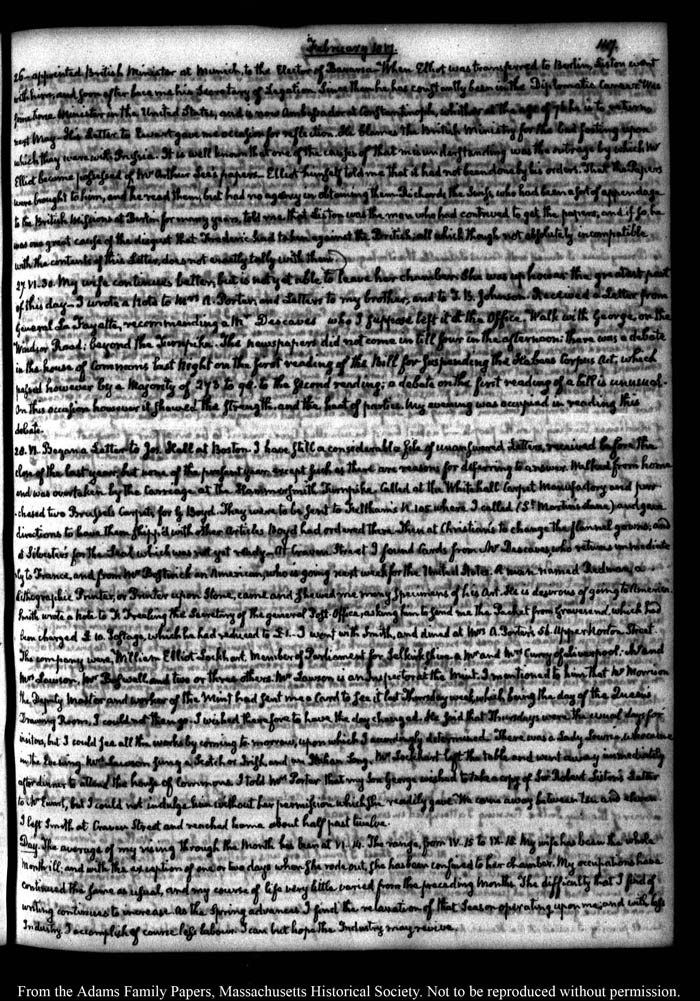 February 1817.
117.
26. appointed British Minister at Munich, to the Elector of Bavaria. When Elliot was transferred to Berlin, Liston went
with him, and soon after became his Secretary of Legation. Since then he has constantly been in the Diplomatic Career. Was
some time Minister in the United States, and is now Ambassador at Constantinople, whither at the age of 76 he is to return
next May. His Letter to Ewart gave me occasion for reflection. He blames the British Ministry for the bad footing upon
which they were with Prussia. It is well known that one of the causes of that misunderstanding was the outrage by which Mr
Elliot became possessed of Mr Arthur Lee's papers. Elliot himself told me that it had not been done by his orders. That the Papers
were brought to him, and he read them, but had no agency in obtaining them. Richards the Swiss, who had been a sort of appendage
to the British Missions at Berlin for many years, told me that Liston was the man who had contrived to get the papers, and if so, he
was one great cause of the disgust that Frederic had taken against the British; all which though not absolutely incompatible
with the contents of this Letter, does not exactly tally with them.
27. VI.30. My wife continues better, but is not yet able to leave her chamber. She was up however the greatest part
of this day. I wrote a Note to Mrs A. Porter, and Letters to my brother, and to T. B. Johnson. Received a Letter from
General La Fayette, recommending a Mr Descaves who I suppose left it at the Office. Walk with George, on the
Windsor Road; beyond the Turnpike. The newspapers did not come in till four in the afternoon; there was a debate
in the house of Commons last Night on the first reading of the Bill for suspending the Habeas Corpus Act, which
passed however by a Majority of 273 to 98. to the second reading; a debate on the first reading of a bill is unusual.
On this occasion however it shewed the strength, and the heat of parties. My evening was occupied in reading this
debate.
28. VI. Began a Letter to Jos. Hall at Boston. I have still a considerable file of unanswered Letters, received before the
close of the last year, but none of the present year, except such as there are reasons for deferring to answer. Walked from home
and was overtaken by the carriage at the Hammersmith Turnpike. Called at the Whitehall Carpet Manufactory and pur-
chased two Brussels Carpets for G Boyd. They were to be sent to Feltham's N. 105 where I called (St Martins Lane) and gave
directions to have them shipp'd with other Articles Boyd had ordered there. Then at Christian's to change the flannel gowns; and
at Silvester's for the Seal, which was not yet ready. At Craven Street I found Cards from Mr Descaves who returns immediate
ly to France, and from Mr Bostwick an American, who is going next week for the United States. A man named Redman, a
Lithographic Printer, or Printer upon Stone, came and shewed me many Specimens of his Art. He is desirous of going to America.
Smith wrote a note to F. Freeling the Secretary of the general Post-Office, asking him to send me the Packet from Gravesend, which had
been charged £ 10 Postage, which he had reduced to £ 1. I went with Smith, and dined at Mrs A. Porter's 51. Upper Norton Street.
The company were, William Elliot Lockhart, Member of Parliament for Selkirkshire, a Mr and Mrs Curry of Liverpool. Mr and
Mrs Lawson, Mr Boswell, and two or three others. Mr Lawson is an Inspector at the Mint. I mentioned to him that Mr Morrison
the Deputy Master and worker of the Mint had sent me a Card to see it last Thursday week, which being the day of the Queen's
Drawing Room, I could not then go. I wished therefore to have the day changed. He said that Thursdays were the usual days for
visitors, but I could see all the works by coming to-morrow, upon which I accordingly determined. There was a Lady who came
in the Evening. Mrs Lawson sung a Scotch or Irish, and an Italian Song. Mr Lockhart left the table and went away immediately
after dinner to attend the house of Commons. I told Mrs Porter that my Son George wished to take a copy of Sir Robert Liston's Letter
to Mr Ewart, but I could not indulge him without her permission which she readily gave. We came away between ten and eleven.
I left Smith at Craven Street and reached home about half past twelve.
Day. The average of my rising through the Month has been at VI.14. The range, from IV.15 to IX.15. My wife has been the whole
month ill, and with the exception of one or two days when she rode out, she has been confined to her chamber. My occupations have
continued the same as usual, and my course of life very little varied from the preceding Months. The difficulty that I find of
writing continues to increase. As the Spring advances I find the relaxation of that Season operating upon me; and with less
Industry I accomplish of course less labour. I can but hope the Industry may revive.
From the Adams Family Papers, Massachusetts Historical Society. Not to be reproduced without permission.